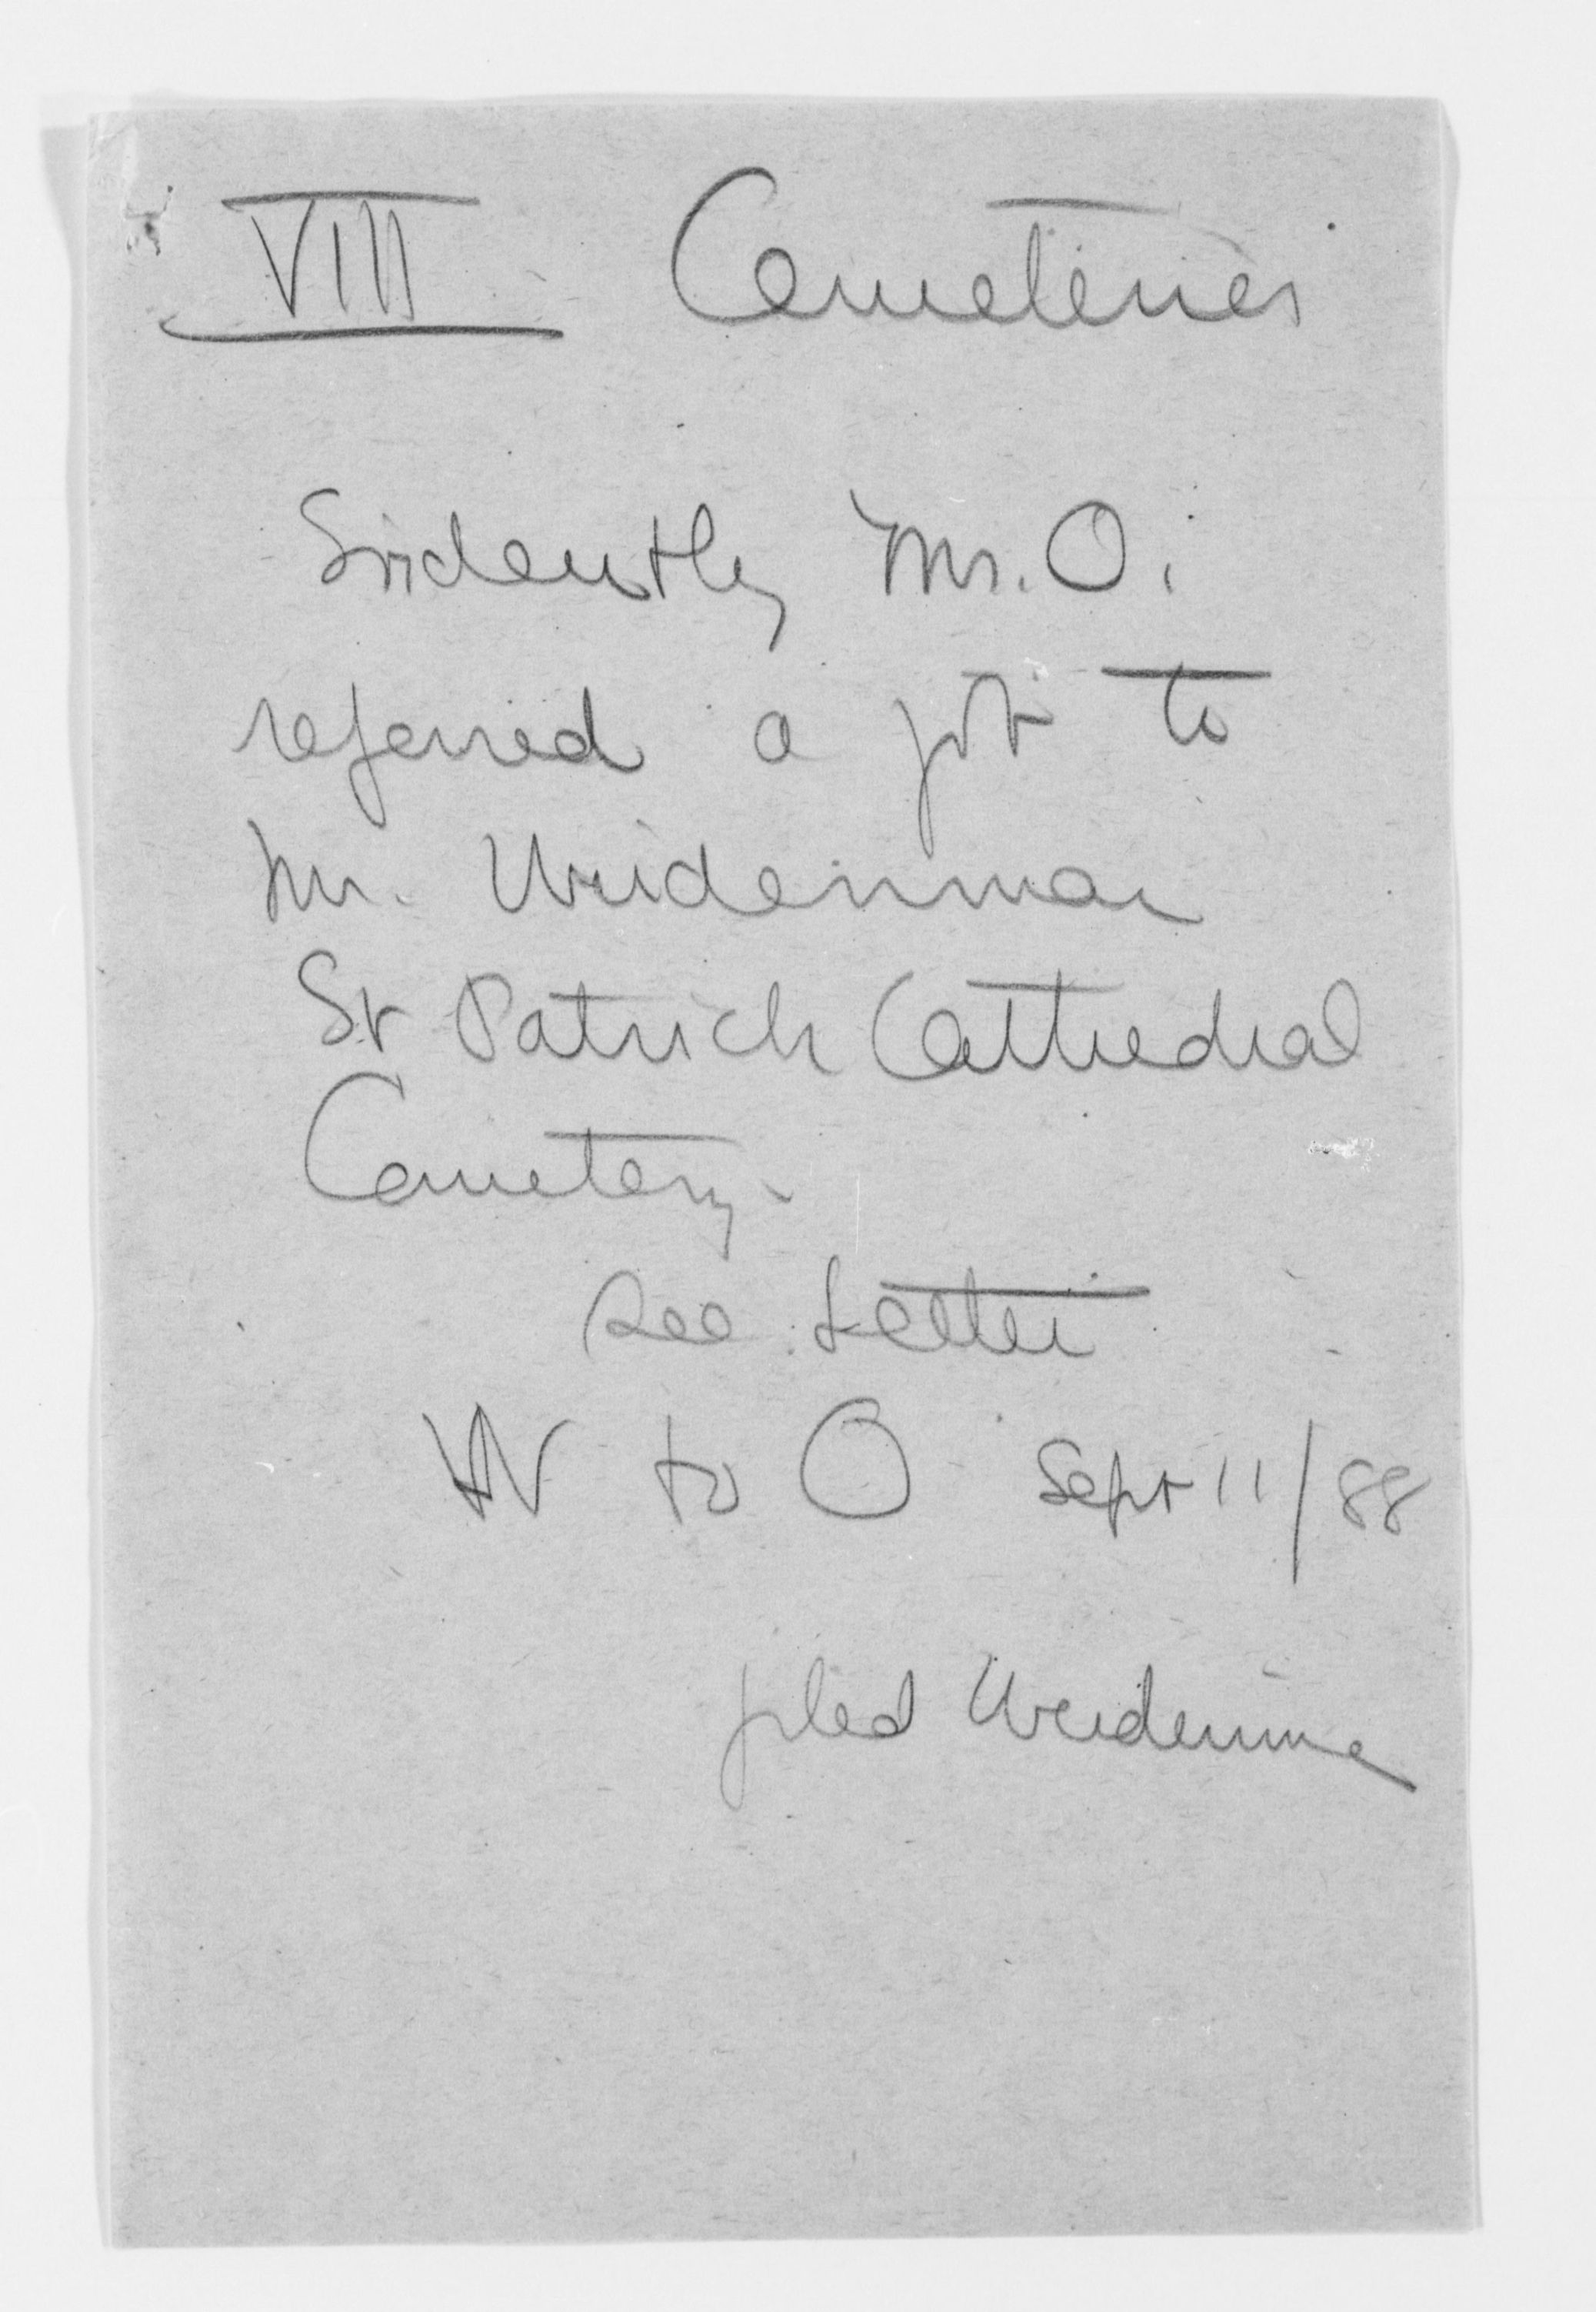 VIII Cemeteries
Evidently Mr. O.
referred a job to
Mr. Weidenman
St Patrick Cathedral
Cemetery.
See Letter
W to O Sept 11/88
filed Weidenman